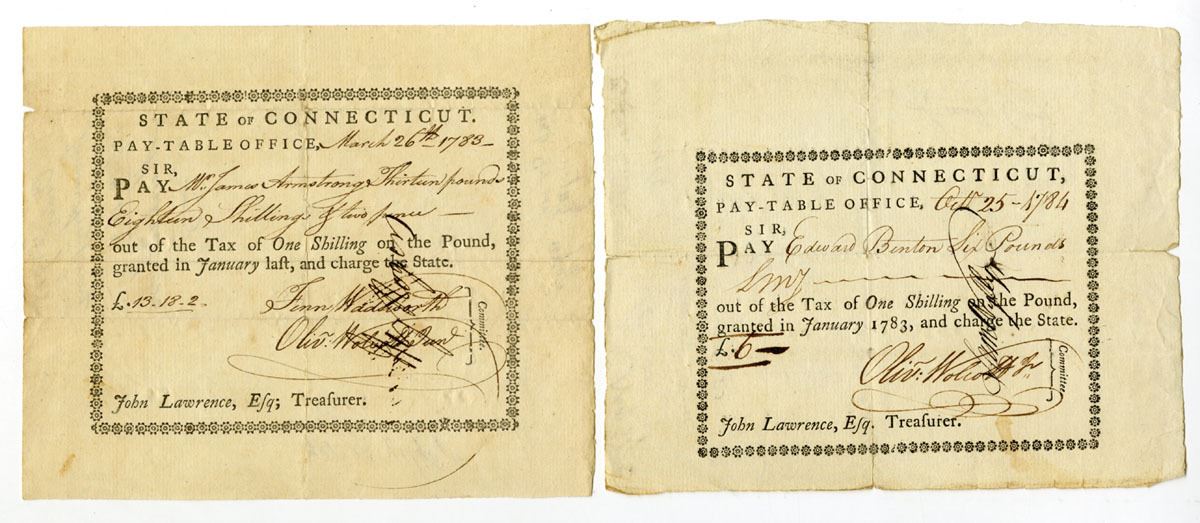 STATE OF CONNECTICUT.
PAY-TABLE OFFICE, March 26th 1783-
SIR,
PAY Mr. James Armstrong Thirteen pounds
Eighteen Shillings & two pence —
out of the Tax of One Shilling on the Pound,
granted in January last, and charge the State.
£. 13-18-2
Fenn Wadsworth
Olivr. Wolcott Junr
Committee.
John Lawrence, Esq; Treasurer.
STATE OF CONNECTICUT,
PAY-TABLE OFFICE, Octr 25-1784
SIR,
PAY Edward Benton Six Pounds
out of the Tax of One Shilling on the Pound,
granted in January 1783, and charge the State.
£. 6 —
Olivr. Wolcott Jr.
Committee
John Lawrence, Esq. Treasurer.